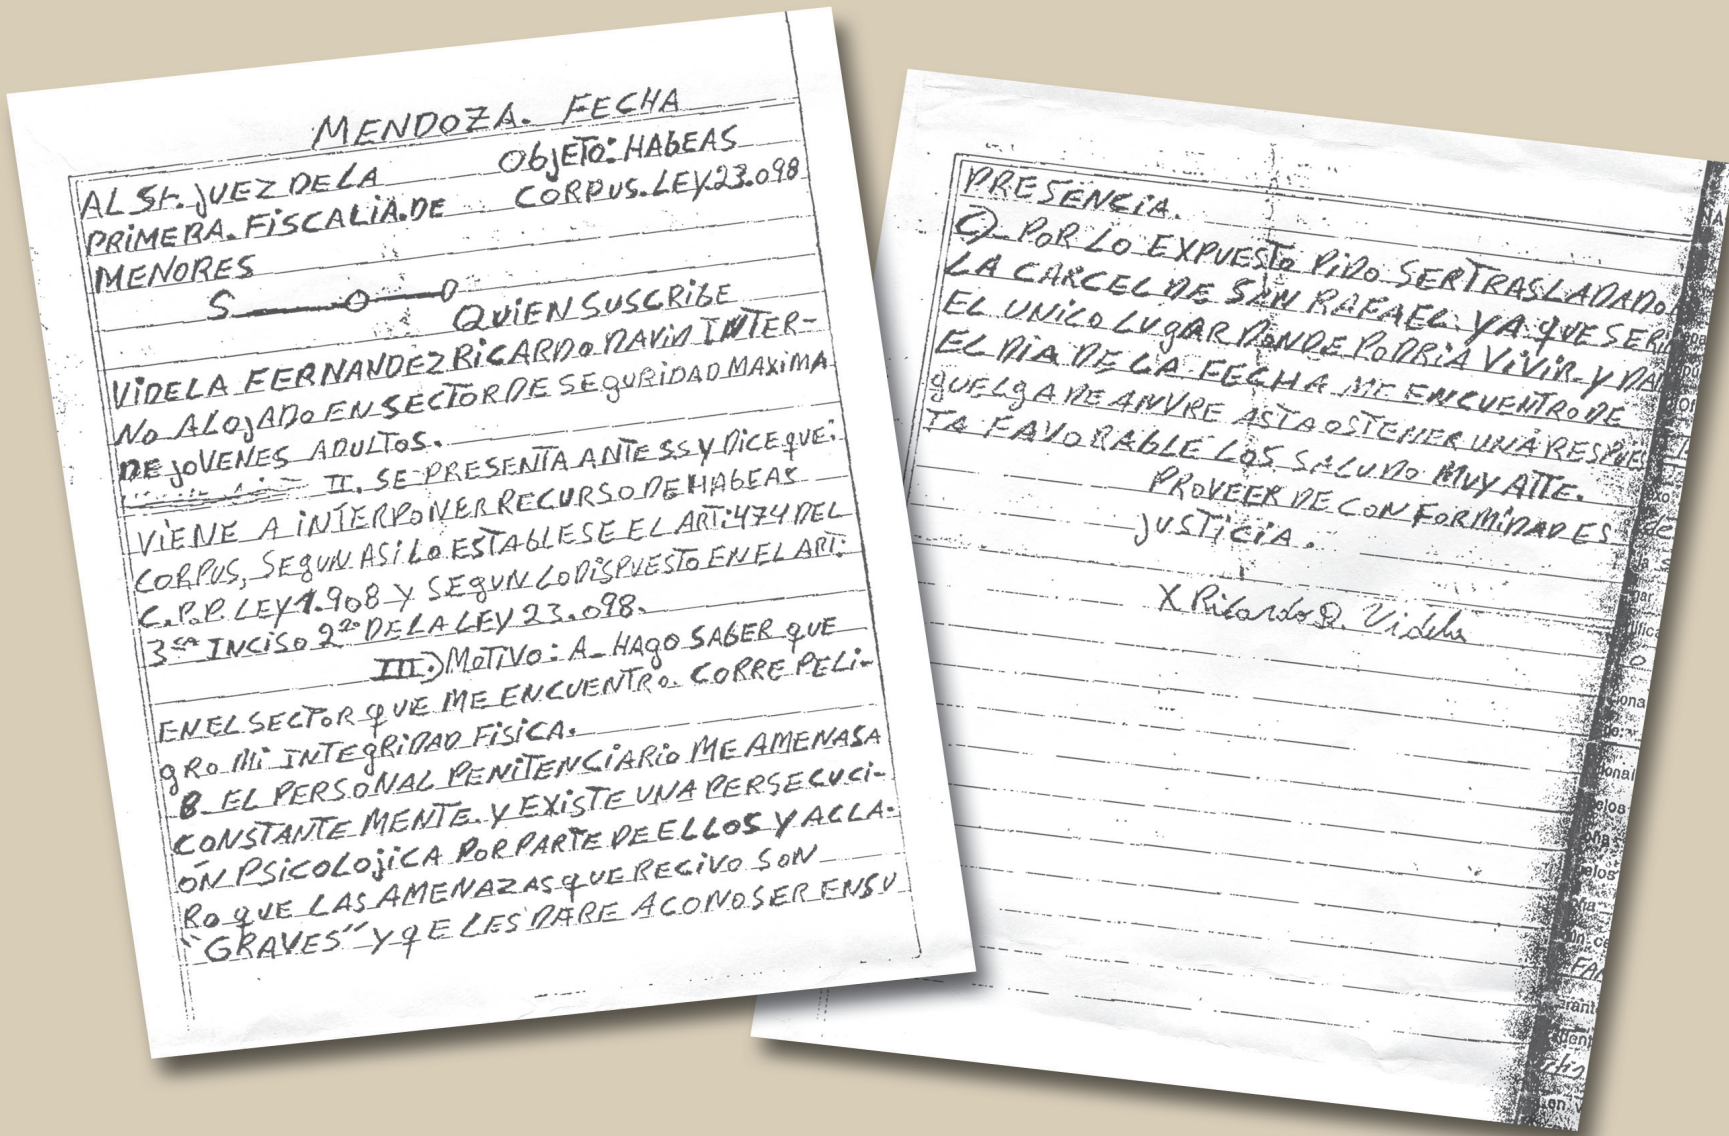 MENDOZA. FECHA
AL Sr. JUEZ DE LA
PRIMERA. FISCALIA. DE
MENORES
ObJETO: HAbEAS
CORPUS. LEY. 23.098
S
QUIEN SUSCRIBE
VIDELA FERNANDEZ RICARDO DAVID INTER-
NO ALOJADO EN SECTOR DE SEGURIDAD MAXIMA
DE JOVENES ADULTOS.
II. SE PRESENTA ANTE SS Y DICE QUE:
VIENE A INTERPONER RECURSO DE HABEAS
CORPUS, SEGUN ASI LO ESTABLESE EL ART: 474 DEL
C.P.P. LEY 1.908 Y SEGUN LO DISPUESTO EN EL ART:
3 INCISO 2 DE LA LEY 23.098.
III.) MOTIVO: A_ HAGO SABER QUE
EN EL SECTOR QUE ME ENCUENTRO. CORRE PELI-
GRO MI INTEGRIDAD FISICA.
B_ EL PERSONAL PENITENCIARIO ME AMENASA
CONSTANTE MENTE. Y EXISTE UNA PERSECUCI-
ÓN PSICOLOJICA POR PARTE DE ELLOS Y ACLA-
RO QUE LAS AMENAZAS QUE RECIVO SON
"GRAVES" Y QE LES DARE A CONOSER EN SU
PRESENCIA.
C)_ POR LO EXPUESTO PIDO SER TRASLADADO
LA CARCEL DE SAN RAFAEL. YA QUE SERI
EL UNICO LUGAR DONDE PODRIA VIVIR. Y DA
EL DIA DE LA FECHA ME ENCUENTRO DE
GUELGA DE ANVRE ASTA OSTENER UNA RESPUES
TA FAVORABLE LOS SALUDO MUY ATTE.
PROVEER DE CONFORMIDAD ES
JUSTICIA.
X Ricardo D. Videla